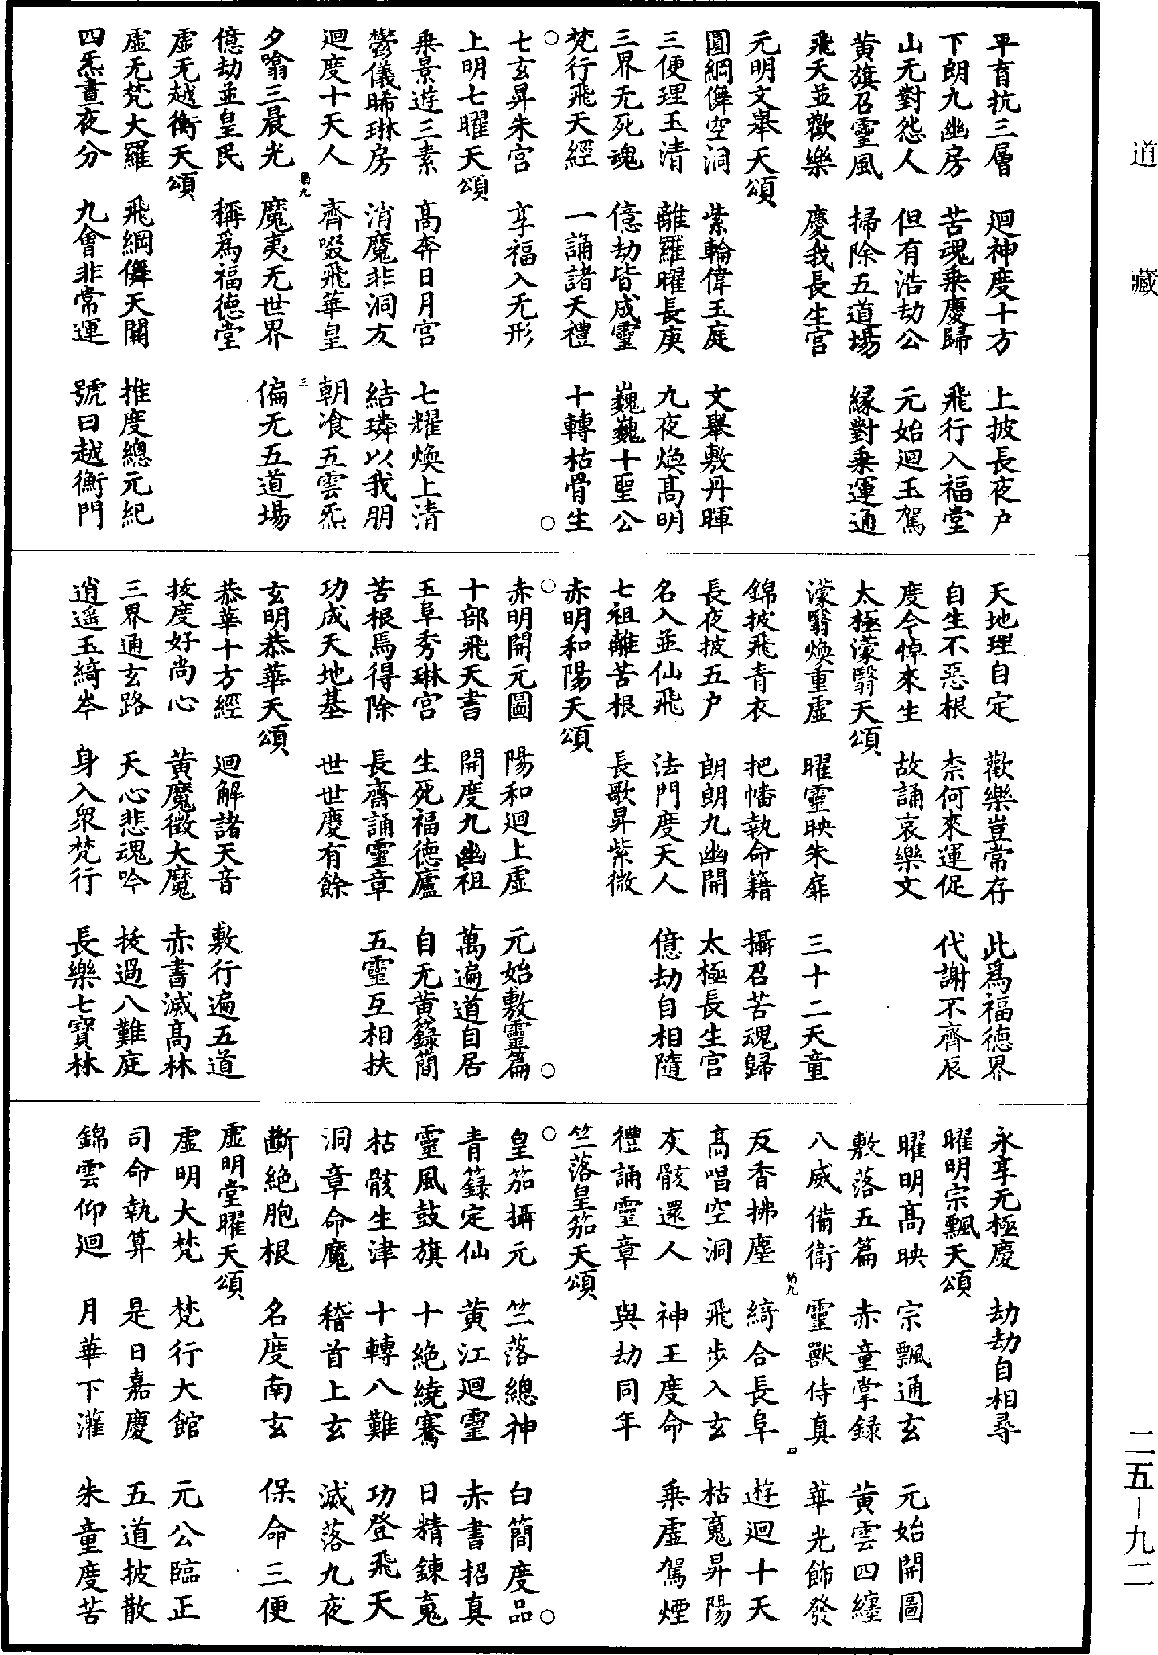 道藏
平育抗三層　迴神度十方　上披長夜户
下朗九幽房　苦魂乘慶歸　飛行入福堂
山无對怨人　但有浩劫公　元始迴玉駕
黄旗召靈風　掃除五道場　縁對乘運通
飛天並歡樂　慶我長生宫
元明文舉天頌
圓綱僻空洞　紫輪偉玉庭　文舉敷丹暉
三便理玉清　離羅曜長庚　九夜焕髙明
三界无死魂　億劫皆成靈　巍巍十聖公
梵行飛天經　一誦諸天禮　十轉枯骨生
七玄昇朱宫　享福入无形
上明七曜天頌
乘景遊三素　髙奔日月宫　七耀焕上清
鬱儀晞琳房　消魔非洞友　結璘以我朋
迴度十天人　齊啜飛華皇　朝飡五雲炁
夕噏三晨光　魔夷无世界　偏无五道場
億劫並皇民　稱爲福德堂
虚无越衡天頌
虚无梵大羅　飛綱僻天關　推度總元紀
四炁晝夜分　九會非常運　號曰越衡門
天地理自定　歡樂豈常存　此爲福德界
自生不惡根　柰何來運促　代謝不齊辰
度今悼來生　故誦哀樂文
太極濛翳天頌
濛翳焕重虚　曜靈映朱扉　三十二天童
錦披飛青衣　把幡執命籍　攝召苦魂歸
長夜披五户　朗朗九幽開　太極長生宫
名入並仙飛　法門度天人　億劫自相隨
七祖離苦根　長歌昇紫微
赤明和陽天頌
赤明開元圖　陽和迴上虚　元始敷靈篇
十部飛天書　開度九幽祖　萬遍道自居
玉阜秀琳宫　生死福德廬　自无黄籙簡
苦根焉得除　長齋誦靈章　五靈互相扶
功成天地基　世世慶有餘
玄明恭華天頌
恭華十方經　迴解諸天音　敷行遍五道
拔度好尚心　黄魔徵大魔　赤書滅髙林
三界通玄路　天心悲魂吟　拔過八難庭
逍遥玉綺岑　身入衆梵行　長樂七寳林
永享无極慶　劫劫自相尋
曜明宗飄天頌
曜明髙映　宗飄通玄　元始開圖
敷落五篇　赤童掌録　黄雲四纏
八威備衛　靈獸侍真　華光飾發
友香拂塵　綺合長阜　遊迴十天
髙唱空洞　飛步入玄　枯䰟昇陽
灰骸還人　神王度命　乘虚駕煙
禮誦靈章　與劫同年
竺落皇笳天頌
皇笳攝元　竺落總神　白簡度品
青籙定仙　黄江迴靈　赤書招真
靈風鼓旗　十絶繞騫　日精鍊䰟
枯骸生津　十轉八難　功登飛天
洞章命魔　稽首上玄　滅落九夜
斷絶胞根　名度南玄　保命三便
虚明堂曜天頌
虚明大梵　梵行大館　元公臨正
司命執算　是日嘉慶　五道披散
錦雲仰迴　月華下灌　朱童度苦
二五－九二